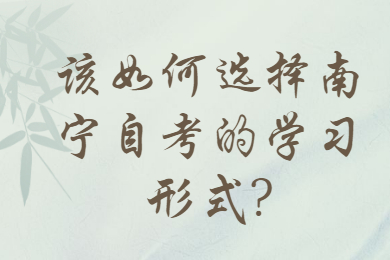 该如何选择南
宁自考的学习
形式?